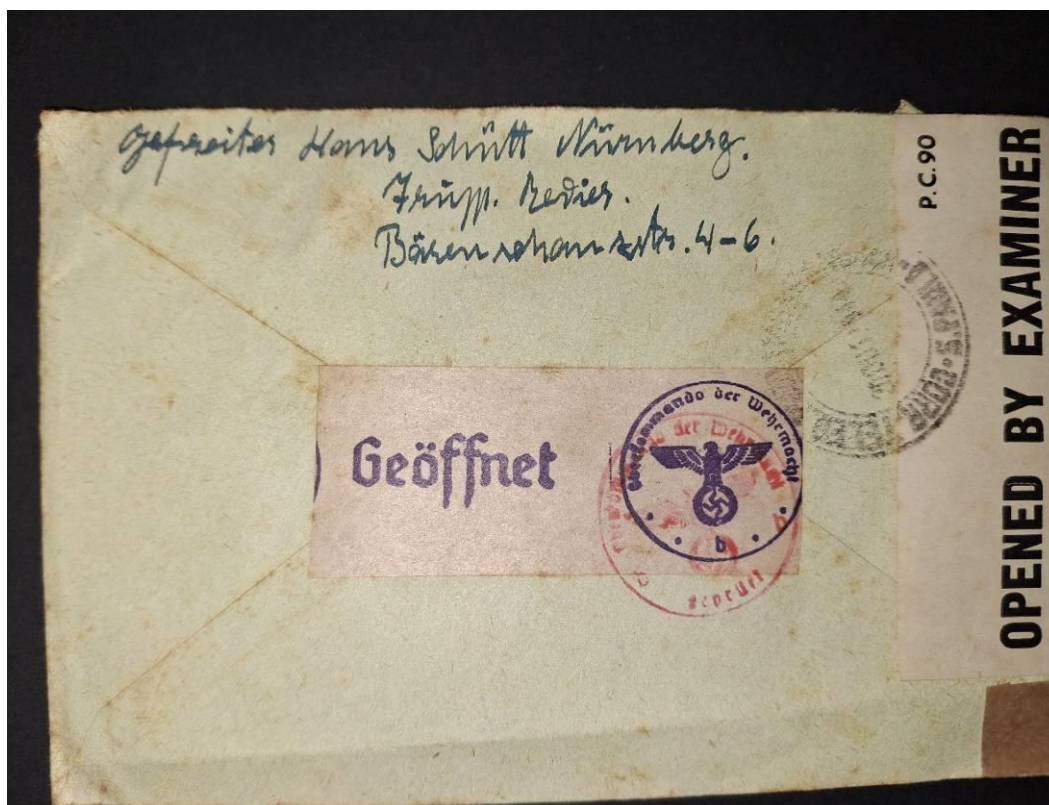 Gefreiter Hans Schütt Nürnberg.
Bärenschanzstr. 4-6.
Geöffnet
Oberkommando der Wehrmacht
b
der Wehrmacht
geprüft
P.C.90
OPENED BY EXAMINER